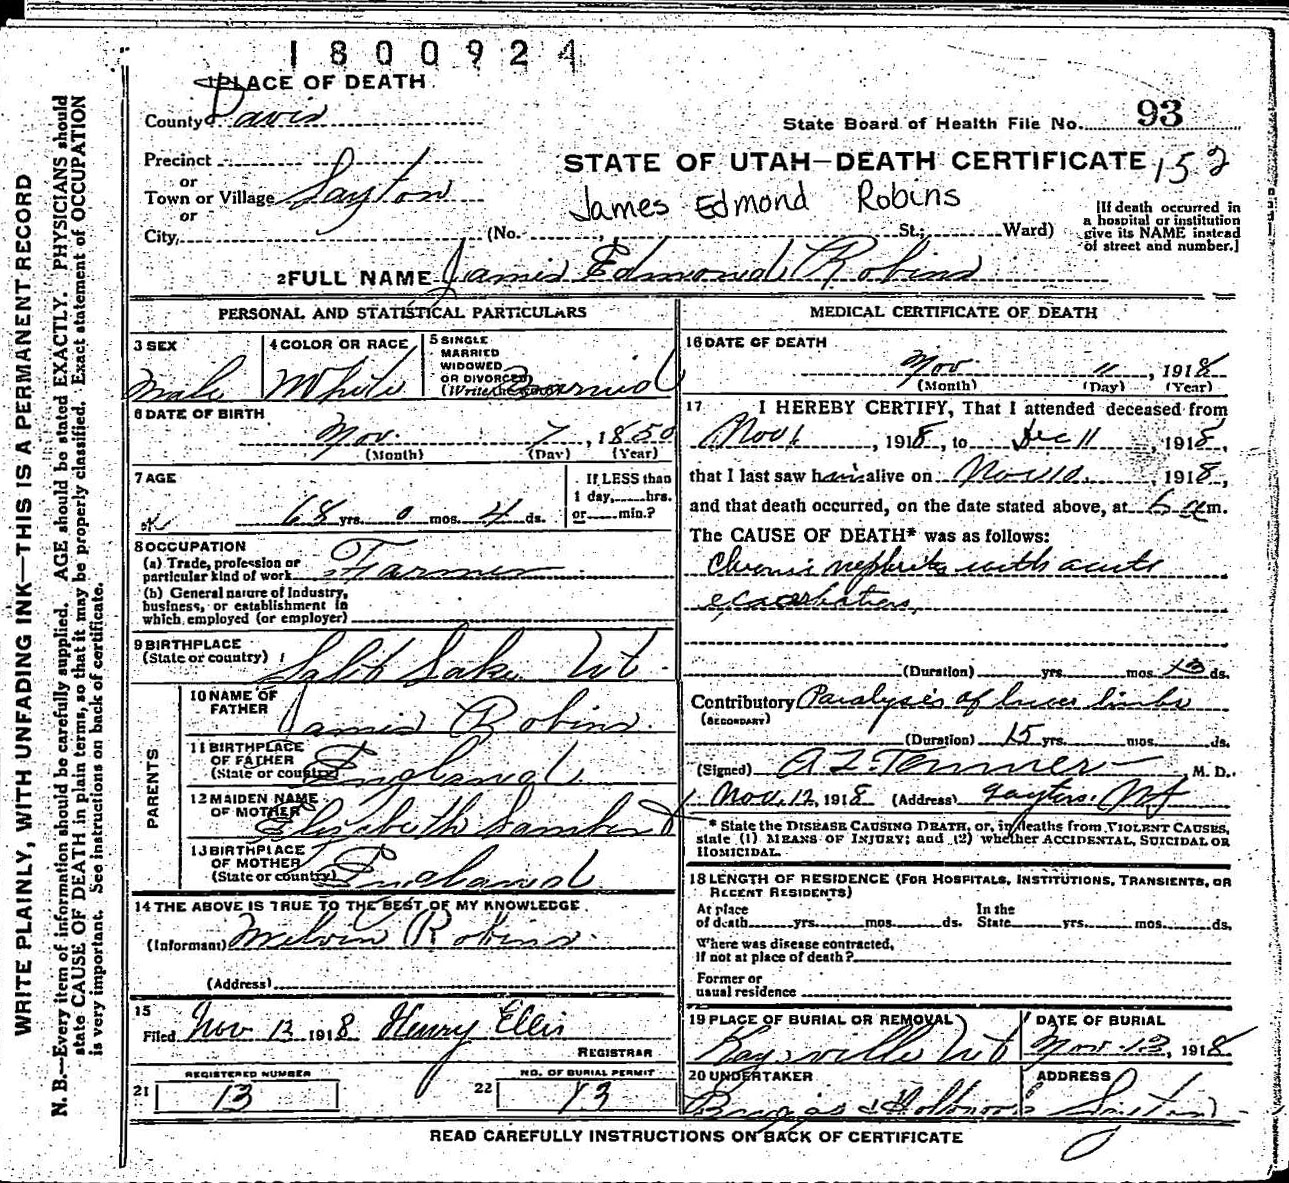 1800924
1 PLACE OF DEATH
County Davis
State Board of Health File No. 93
Precinct
STATE OF UTAH—DEATH CERTIFICATE 152
or
Town or Village Layton
James Edmond Robins
or
City, (No. , St.; Ward)
[If death occurred in
a hospital or institution
give its NAME instead
of street and number.]
2 FULL NAME James Edmond Robins
PERSONAL AND STATISTICAL PARTICULARS
3 SEX
Male
4 COLOR OR RACE
White
5 SINGLE
MARRIED
WIDOWED
OR DIVORCED
(Write the word) Married
6 DATE OF BIRTH
Nov. 7, 1850
(Month) (Day) (Year)
7 AGE
68 yrs. 0 mos. 4 ds.
If LESS than
1 day, hrs.
or min.?
8 OCCUPATION
(a) Trade, profession or
particular kind of work Farmer
(b) General nature of Industry,
business, or establishment in
which employed (or employer)
9 BIRTHPLACE
(State or country) Salt Lake Ut.
PARENTS
10 NAME OF
FATHER James Robins.
11 BIRTHPLACE
OF FATHER
(State or country) England
12 MAIDEN NAME
OF MOTHER Elizabeth Lambert
13 BIRTHPLACE
OF MOTHER
(State or country) England
14 THE ABOVE IS TRUE TO THE BEST OF MY KNOWLEDGE
(Informant) Melvin Robins.
(Address)
15
Filed Nov 13 1918 Henry Ellis
REGISTRAR
REGISTERED NUMBER
21 13
NO. OF BURIAL PERMIT
22 13
MEDICAL CERTIFICATE OF DEATH
16 DATE OF DEATH
Nov. 11, 1918
(Month) (Day) (Year)
17 I HEREBY CERTIFY, That I attended deceased from
Nov 1, 1918, to Dec 11 1918,
that I last saw him alive on Nov 10, 1918,
and that death occurred, on the date stated above, at 6 a m.
The CAUSE OF DEATH* was as follows:
Chronic nephritis with acute
exacerbations
(Duration) yrs. mos. 13 ds.
Contributory Paralysis of lower limbs
(SECONDARY)
(Duration) 15 yrs. mos. ds.
(Signed) A Z Tanner M. D.
Nov. 12, 1918 (Address) Layton. Ut
* State the DISEASE CAUSING DEATH, or, in deaths from VIOLENT CAUSES,
state (1) MEANS OF INJURY; and (2) whether ACCIDENTAL, SUICIDAL OR
HOMICIDAL.
18 LENGTH OF RESIDENCE (FOR HOSPITALS, INSTITUTIONS, TRANSIENTS, OR
RECENT RESIDENTS)
At place In the
of death yrs. mos. ds. State yrs. mos. ds.
Where was disease contracted,
if not at place of death?
Former or
usual residence
19 PLACE OF BURIAL OR REMOVAL
Kaysville Ut
DATE OF BURIAL
Nov. 13, 1918
20 UNDERTAKER
Briggs &
ADDRESS
Layton
READ CAREFULLY INSTRUCTIONS ON BACK OF CERTIFICATE
WRITE PLAINLY, WITH UNFADING INK—THIS IS A PERMANENT RECORD
N. B.—Every item of information should be carefully supplied. AGE should be stated EXACTLY. PHYSICIANS should
state CAUSE OF DEATH in plain terms, so that it may be properly classified. Exact statement of OCCUPATION
is very important. See instructions on back of certificate.